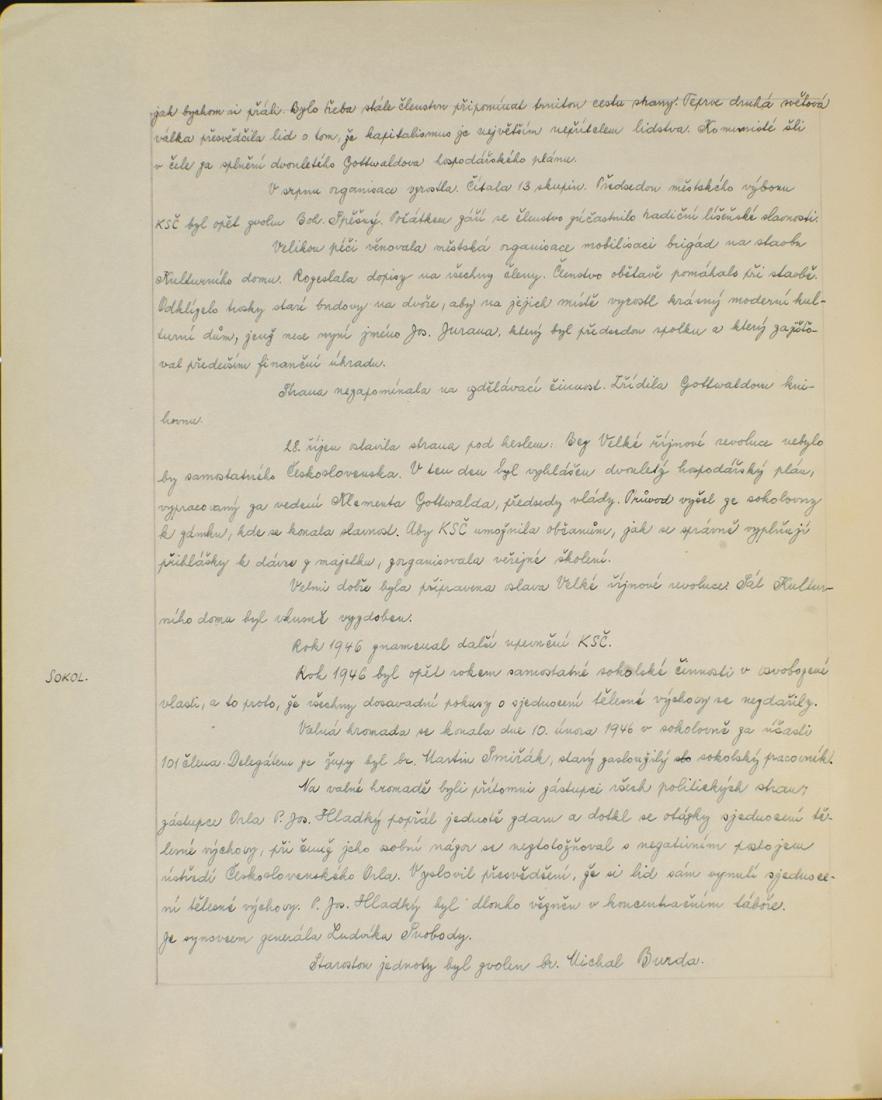 jak bychom si přáli. Bylo třeba stále členstvu připomínat trnitou cestu strany. Teprve druhá světová
válka přesvědčila lid o tom, že kapitalismus je největším nepřítelem lidstva. Komunisté šli
v čele za splnění dvouletého Gottwaldova hospodářského plánu.
V srpnu organisace vzrostla. Čítala 13 skupin. Předsedou městského výboru
KSČ byl opět zvolen Boh. Spěšný. Počátkem září se členstvo zúčastnilo tradiční líšeňské slavnosti.
Velikou péči věnovala městská organisace mobilisaci brigád na stavbu
Kulturního domu. Rozeslala dopisy na všechny členy. Členstvo obětavě pomáhalo při stavbě.
Odklízelo trosky staré budovy na dvoře, aby na jejich místě vyrostl krásný moderní kul-
turní dům, jenž nese nyní jméno Jos. Jurana, který byl předsedou spolku a který zajišťo-
val především finanční úhradu.
Strana nezapomínala na vzdělávací činnost. Zřídila Gottwaldovu kni-
hovnu.
28. říjen slavila strana pod heslem: Bez Velké říjnové revoluce nebylo
by samostatného Československa. V ten den byl vyhlášen dvouletý hospodářský plán,
vypracovaný za vedení Klementa Gottwalda, předsedy vlády. Průvod vyšel ze sokolovny
k zámku, kde se konala slavnost. Aby KSČ umožnila občanům, jak se správně vyplňují
přihlášky k dávce z majetku, zorganisovala veřejné školení.
Velmi dobře byla připravena oslava Velké říjnové revoluce. Sál Kultur-
ního domu byl vkusně vyzdoben.
Rok 1946 znamenal další upevnění KSČ.
SOKOL.
Rok 1946 byl opět rokem samostatné sokolské činnosti v osvobozené
vlasti, a to proto, že všechny dosavadní pokusy o sjednocení tělesné výchovy se nezdařily.
Valná hromada se konala dne 10. února 1946 v sokolovně za účasti
101 člena. Delegátem ze župy byl br. Martin Smiřák, starý zasloužilý sokolský pracovník.
Na valné hromadě byli přítomni zástupci všech politických stran,
zástupce Orla P. Jos. Hladký popřál jednotě zdaru a dotkl se otázky sjednocení tě-
lesné výchovy, při čemž jeho osobní názor se neztotožňoval s negativním postojem
ústředí Československého Orla. Vyslovil přesvědčení, že si lid sám vynutí sjednoce-
ní tělesné výchovy. P. Jos. Hladký byl dlouho vězněn v koncentračním táboře.
Je synovcem generála Ludvíka Svobody.
Starostou jednoty byl zvolen br. Michal Burda.